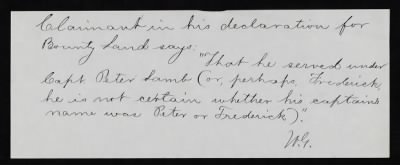 Claimant in his declaration for
Bounty Land says:
"That he served under
Capt. Peter Lamb (or, perhaps, Frederick,
he is not certain whether his captain's
name was Peter or Frederick)".
W.G.